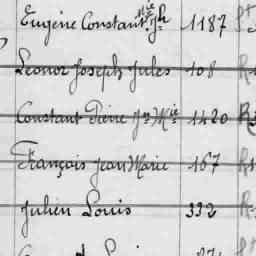 Eugène Constant Mie Jh 1187
Léonor Joseph Jules 108
Constant Pierre Jn Mie 1420 R
François Jean Marie 167 R
Julien Louis 332 R